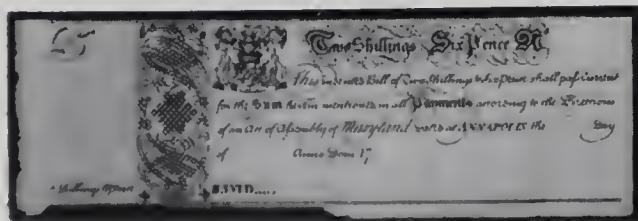 Two Shillings Six Pence N
This indented Bill of Two Shillings & Six Pence shall pass current
for the Sum therein mentioned in all Payments according to the Directions
of an Act of Assembly of Maryland dated at ANNAPOLIS the Day
of Anno Dom 17
Shillings